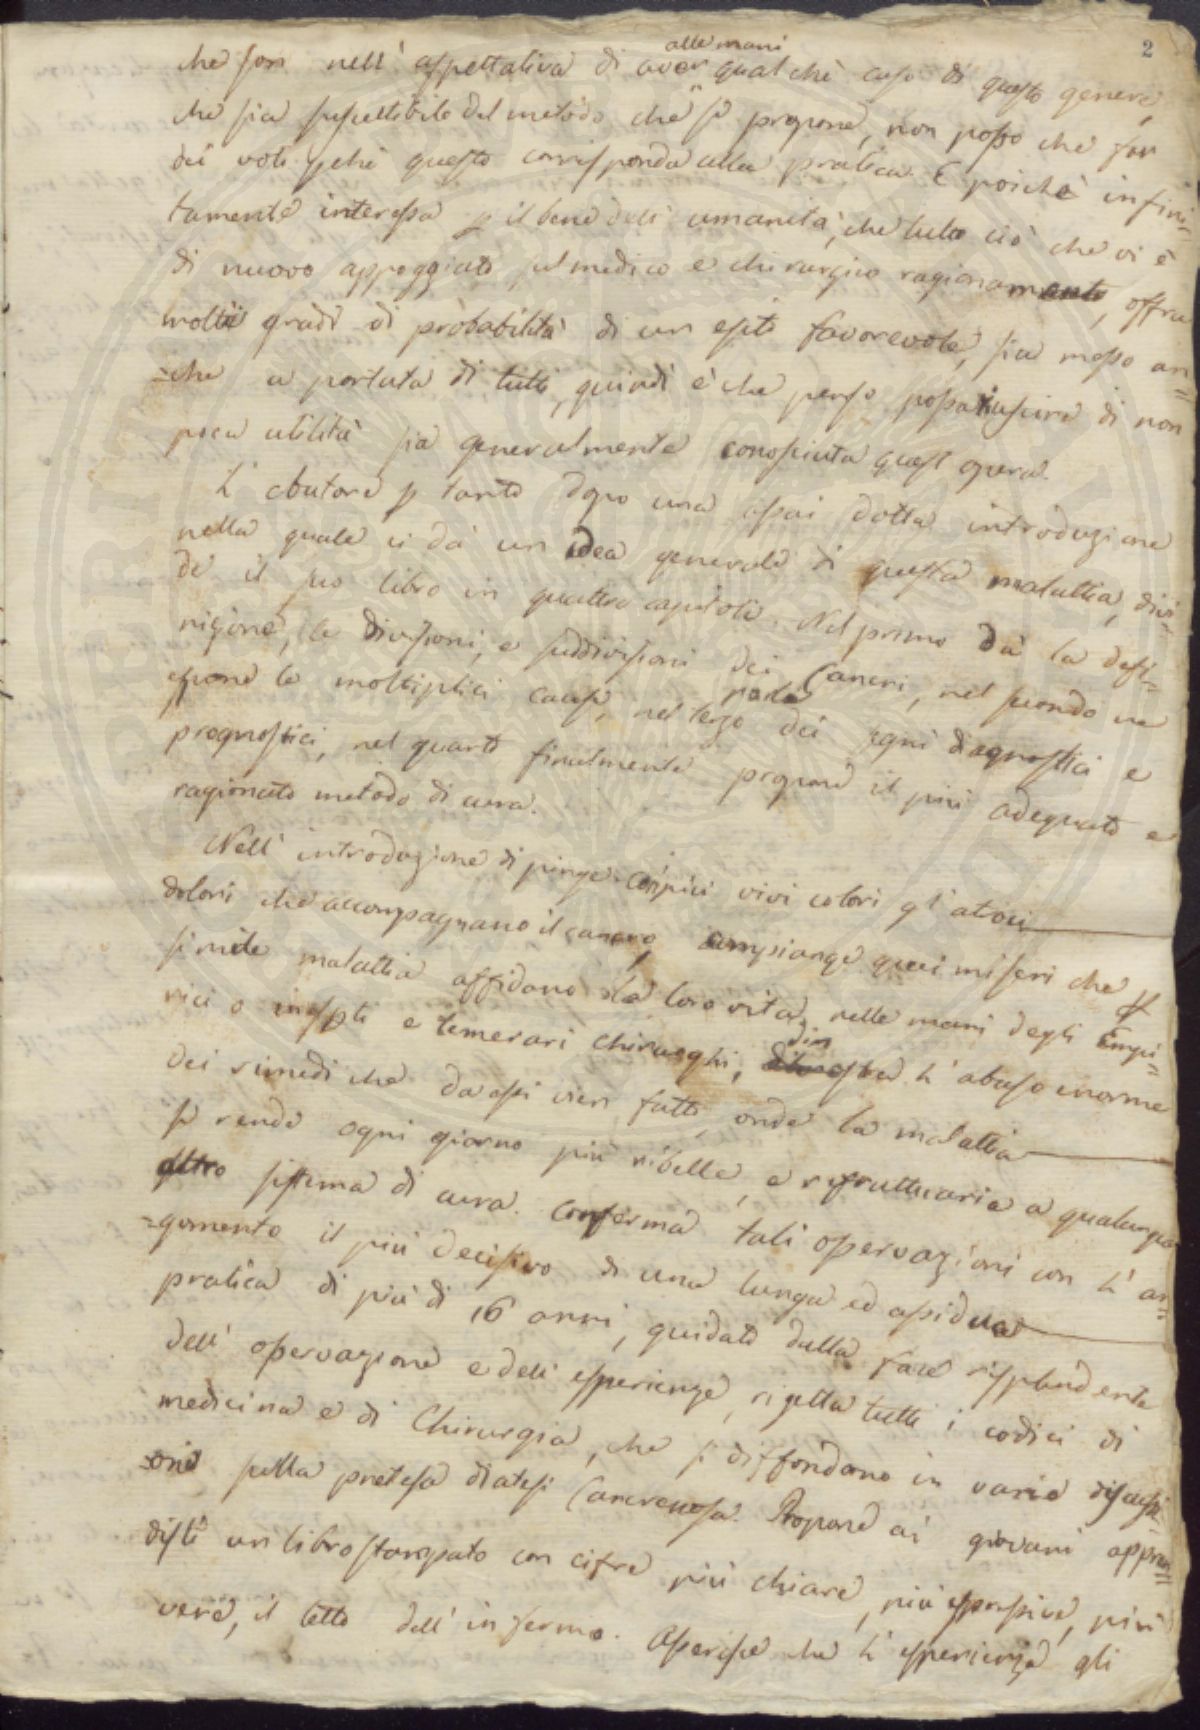 2
che son nell' aspettativa di aver alle mani qualche caso di questo genere,
che sia suscettibile del metodo che si propone, non posso che far
dei voti pchè questo corrisponda alla pratica. E poichè infini-
tamente interessa p il bene dell' umanità, che tutto ciò che vi è
di nuovo appoggiato sul medico e chirurgico ragionamento, offra
molti gradi di probabilità di un esito favorevole, sia messo an=
=che a portata di tutti, quindi è che penso possa riuscire di non
poca utilità sia generalmente conosciuta quest' opera.
L' Autore p tanto dopo una assai dotta introduzione
nella quale ci dà un idea generale di questa malattia, divi-
de il suo libro in quattro capitoli. Nel primo dà la defi=
nizione, le divisioni, e suddivisioni dei Cancri, nel secondo ne
espone le moltiplici cause, nel terzo parla dei segni diagnostici e
prognostici, nel quarto finalmente propone il più adequato e
ragionato metodo di cura.
Nell' introduzione dipinge coi più vivi colori gl' atroci
dolori che accompagnano il cancro, compiange quei miseri che p
simile malattia affidano la loro vita, nelle mani degli Empi=
rici o inesperti e temerari chirurghi, dimostra l' abuso enorme
dei rimedi che da essi vien fatto, onde la malattia
si rende ogni giorno più ribelle, e refrattaria a qualunque
altro sistema di cura. Conferma tali osservazioni con l' ar=
=gomento il più decisivo di una lunga ed assidua
pratica di più di 16 anni, guidato dalla face risplendente
dell' osservazione e dell' esperienza, rigetta tutti i codici di
medicina e di Chirurgia, che si diffondono in varie discussi=
=oni sulla pretesa diatesi Cancrenosa. Propone ai giovani appren=
disti un libro stampato con cifre più chiare, più espressive, più
vere, il letto dell' infermo. Asserisce che l' esperienza gli